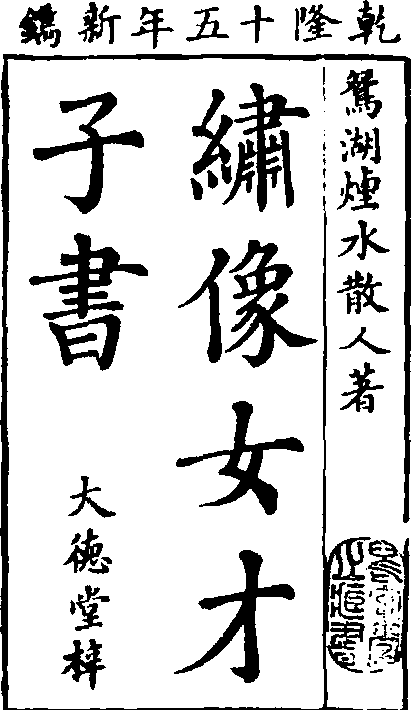 乾隆十五年新鐫
鴛湖煙水散人著
繡像女才
子書
大德堂梓